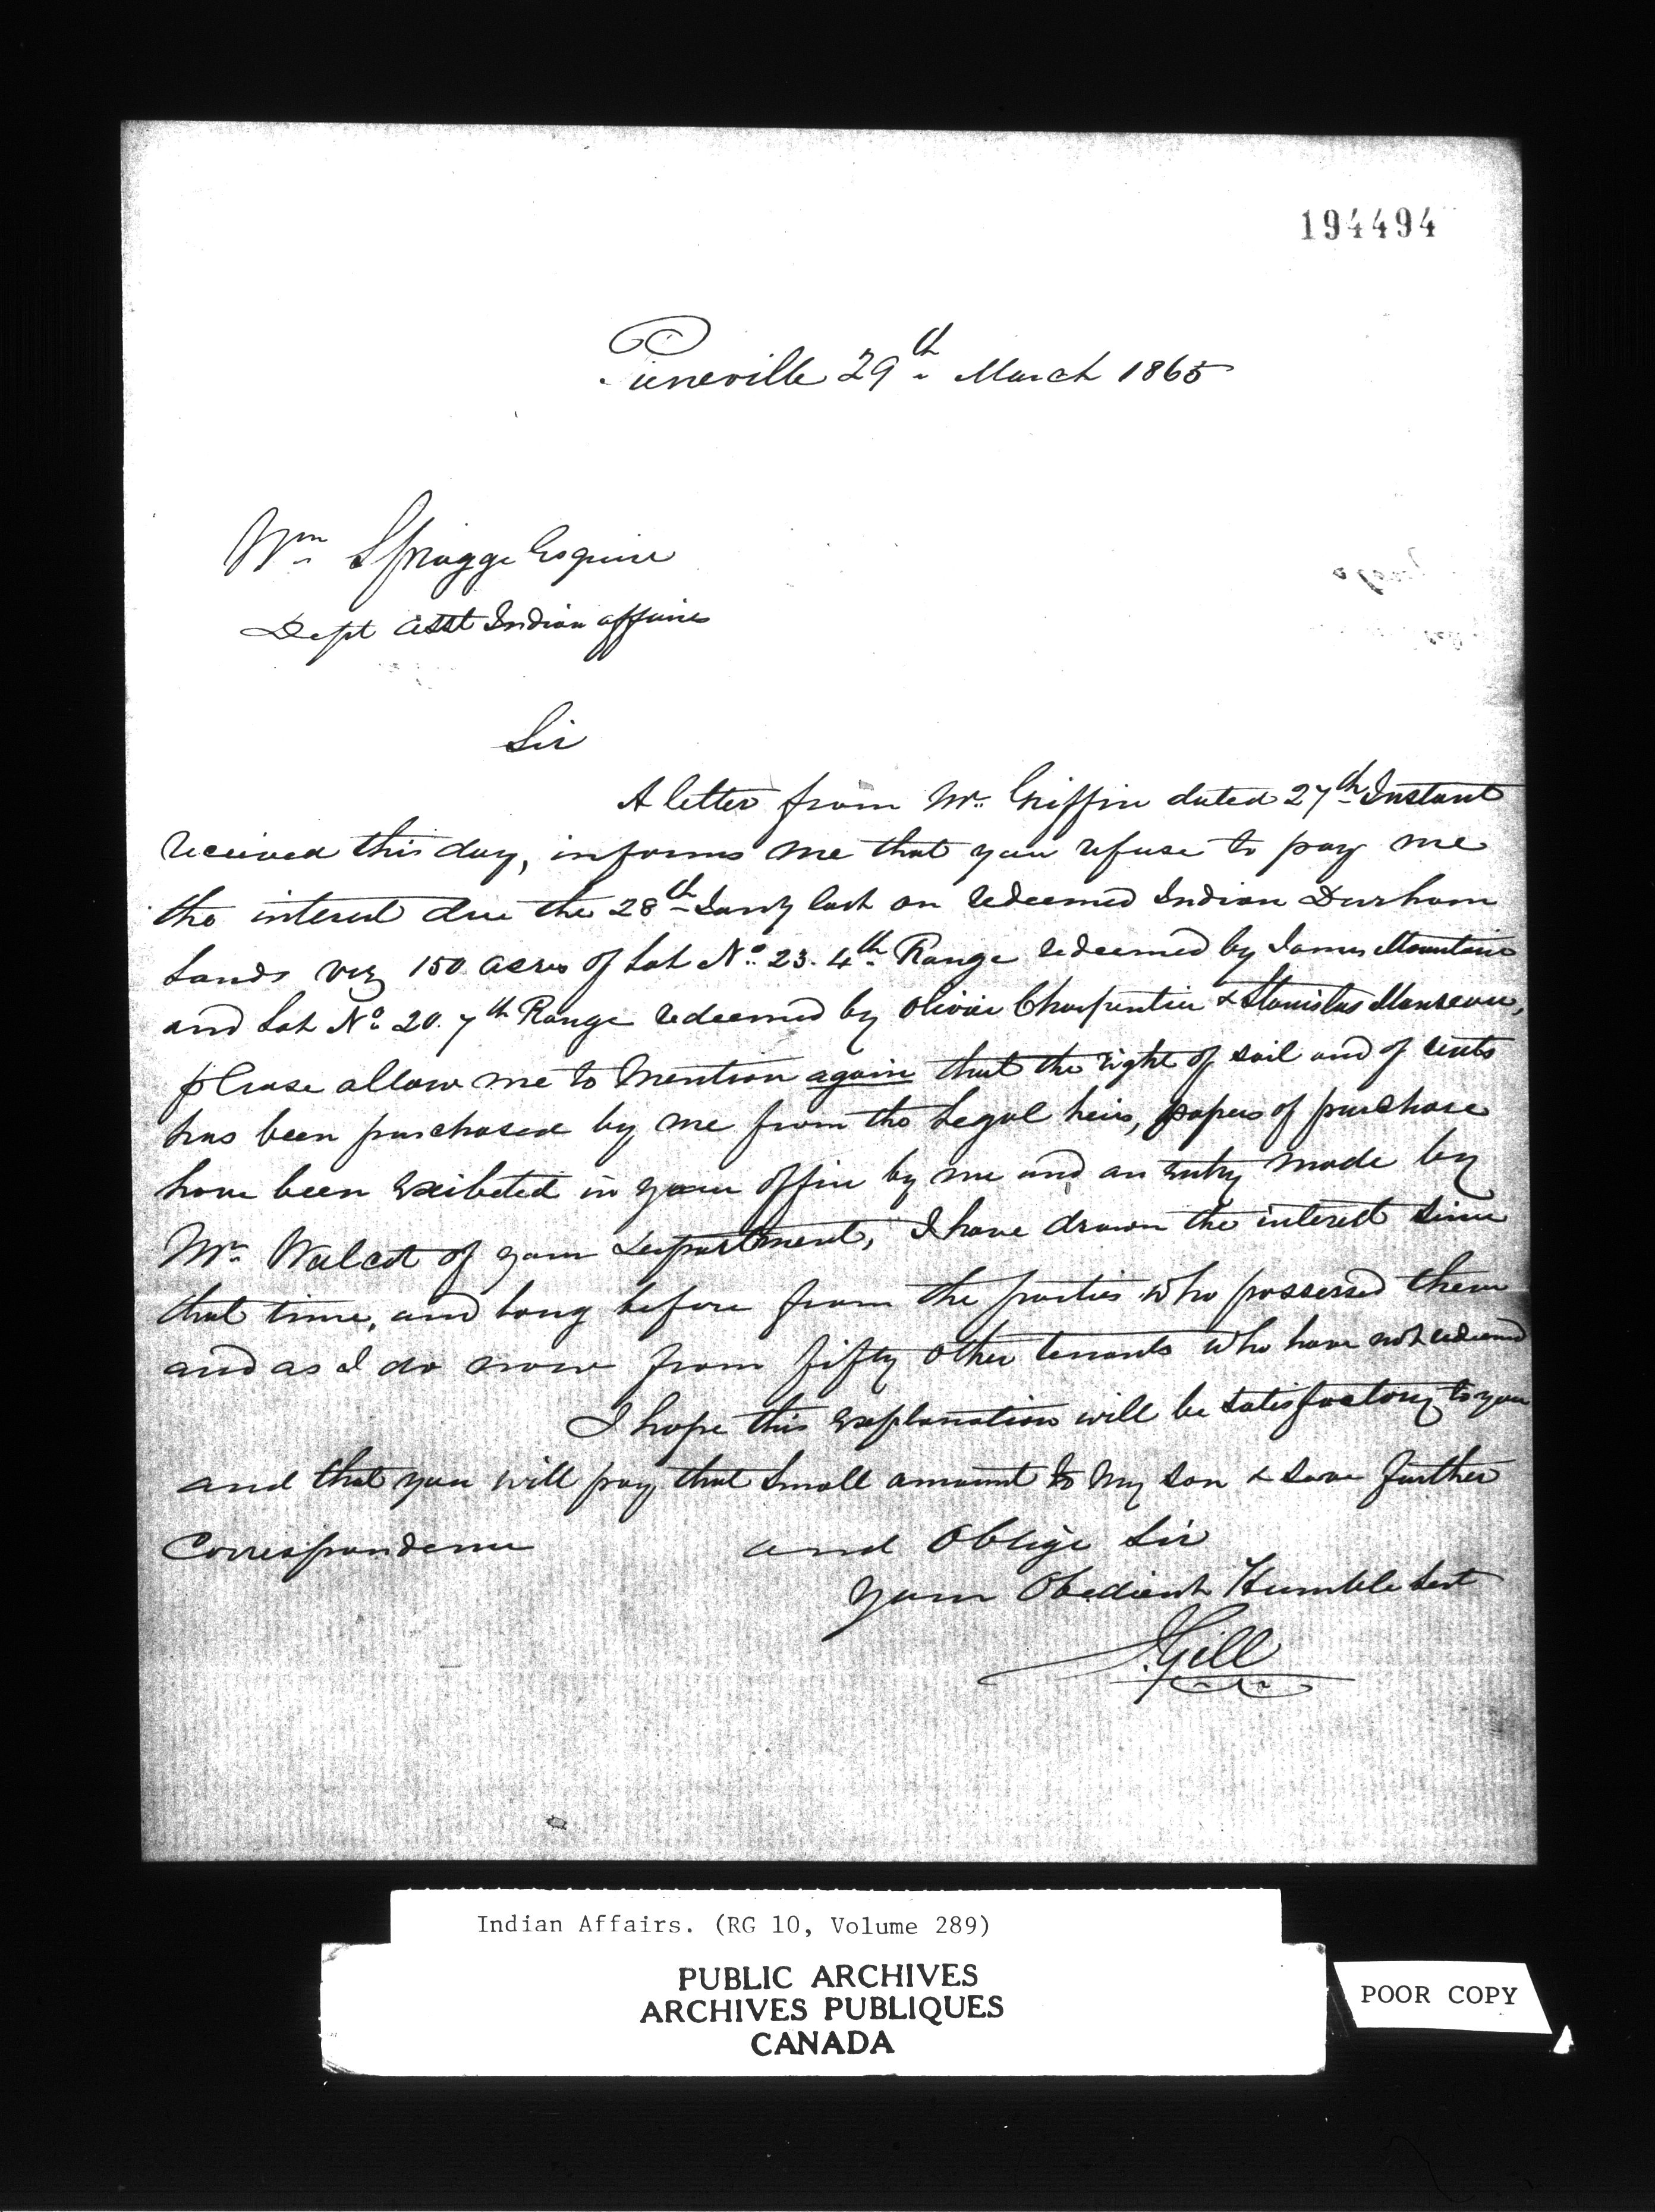 194494
Pierreville 29th March 1865
Wm Spragge Esquire
Dept Asst Indian affairs
Sir
A letter from Mr. Griffin dated 27th Instant
received this day, informs me that you refuse to pay me
the interest due the 28th Jany last on redeemed Indian Durham
Lands viz 150 acres of Lot No. 23. 4th Range redeemed by James Mountain
and Lot No 20. 7th Range redeemed by Olivier Charpentier & Stanislas Manseau,
please allow me to mention again that the right of soil and of rents
has been purchased by me from the Legal heirs, papers of purchase
have been exibeted in your office by me and an entry made by
Mr. Walcot of your Department, I have drawn the interest since
that time, and long before from the parties who possessed them
and as I do now from fifty other tenants who have not redeemed
I hope this explanation will be satisfactory to you
and that you will pay that small amount to my son & save further
Correspondence and Oblige Sir
your Obedient Humble Sert
Gill
Indian Affairs. (RG 10, Volume 289)
PUBLIC ARCHIVES
ARCHIVES PUBLIQUES
CANADA
POOR COPY